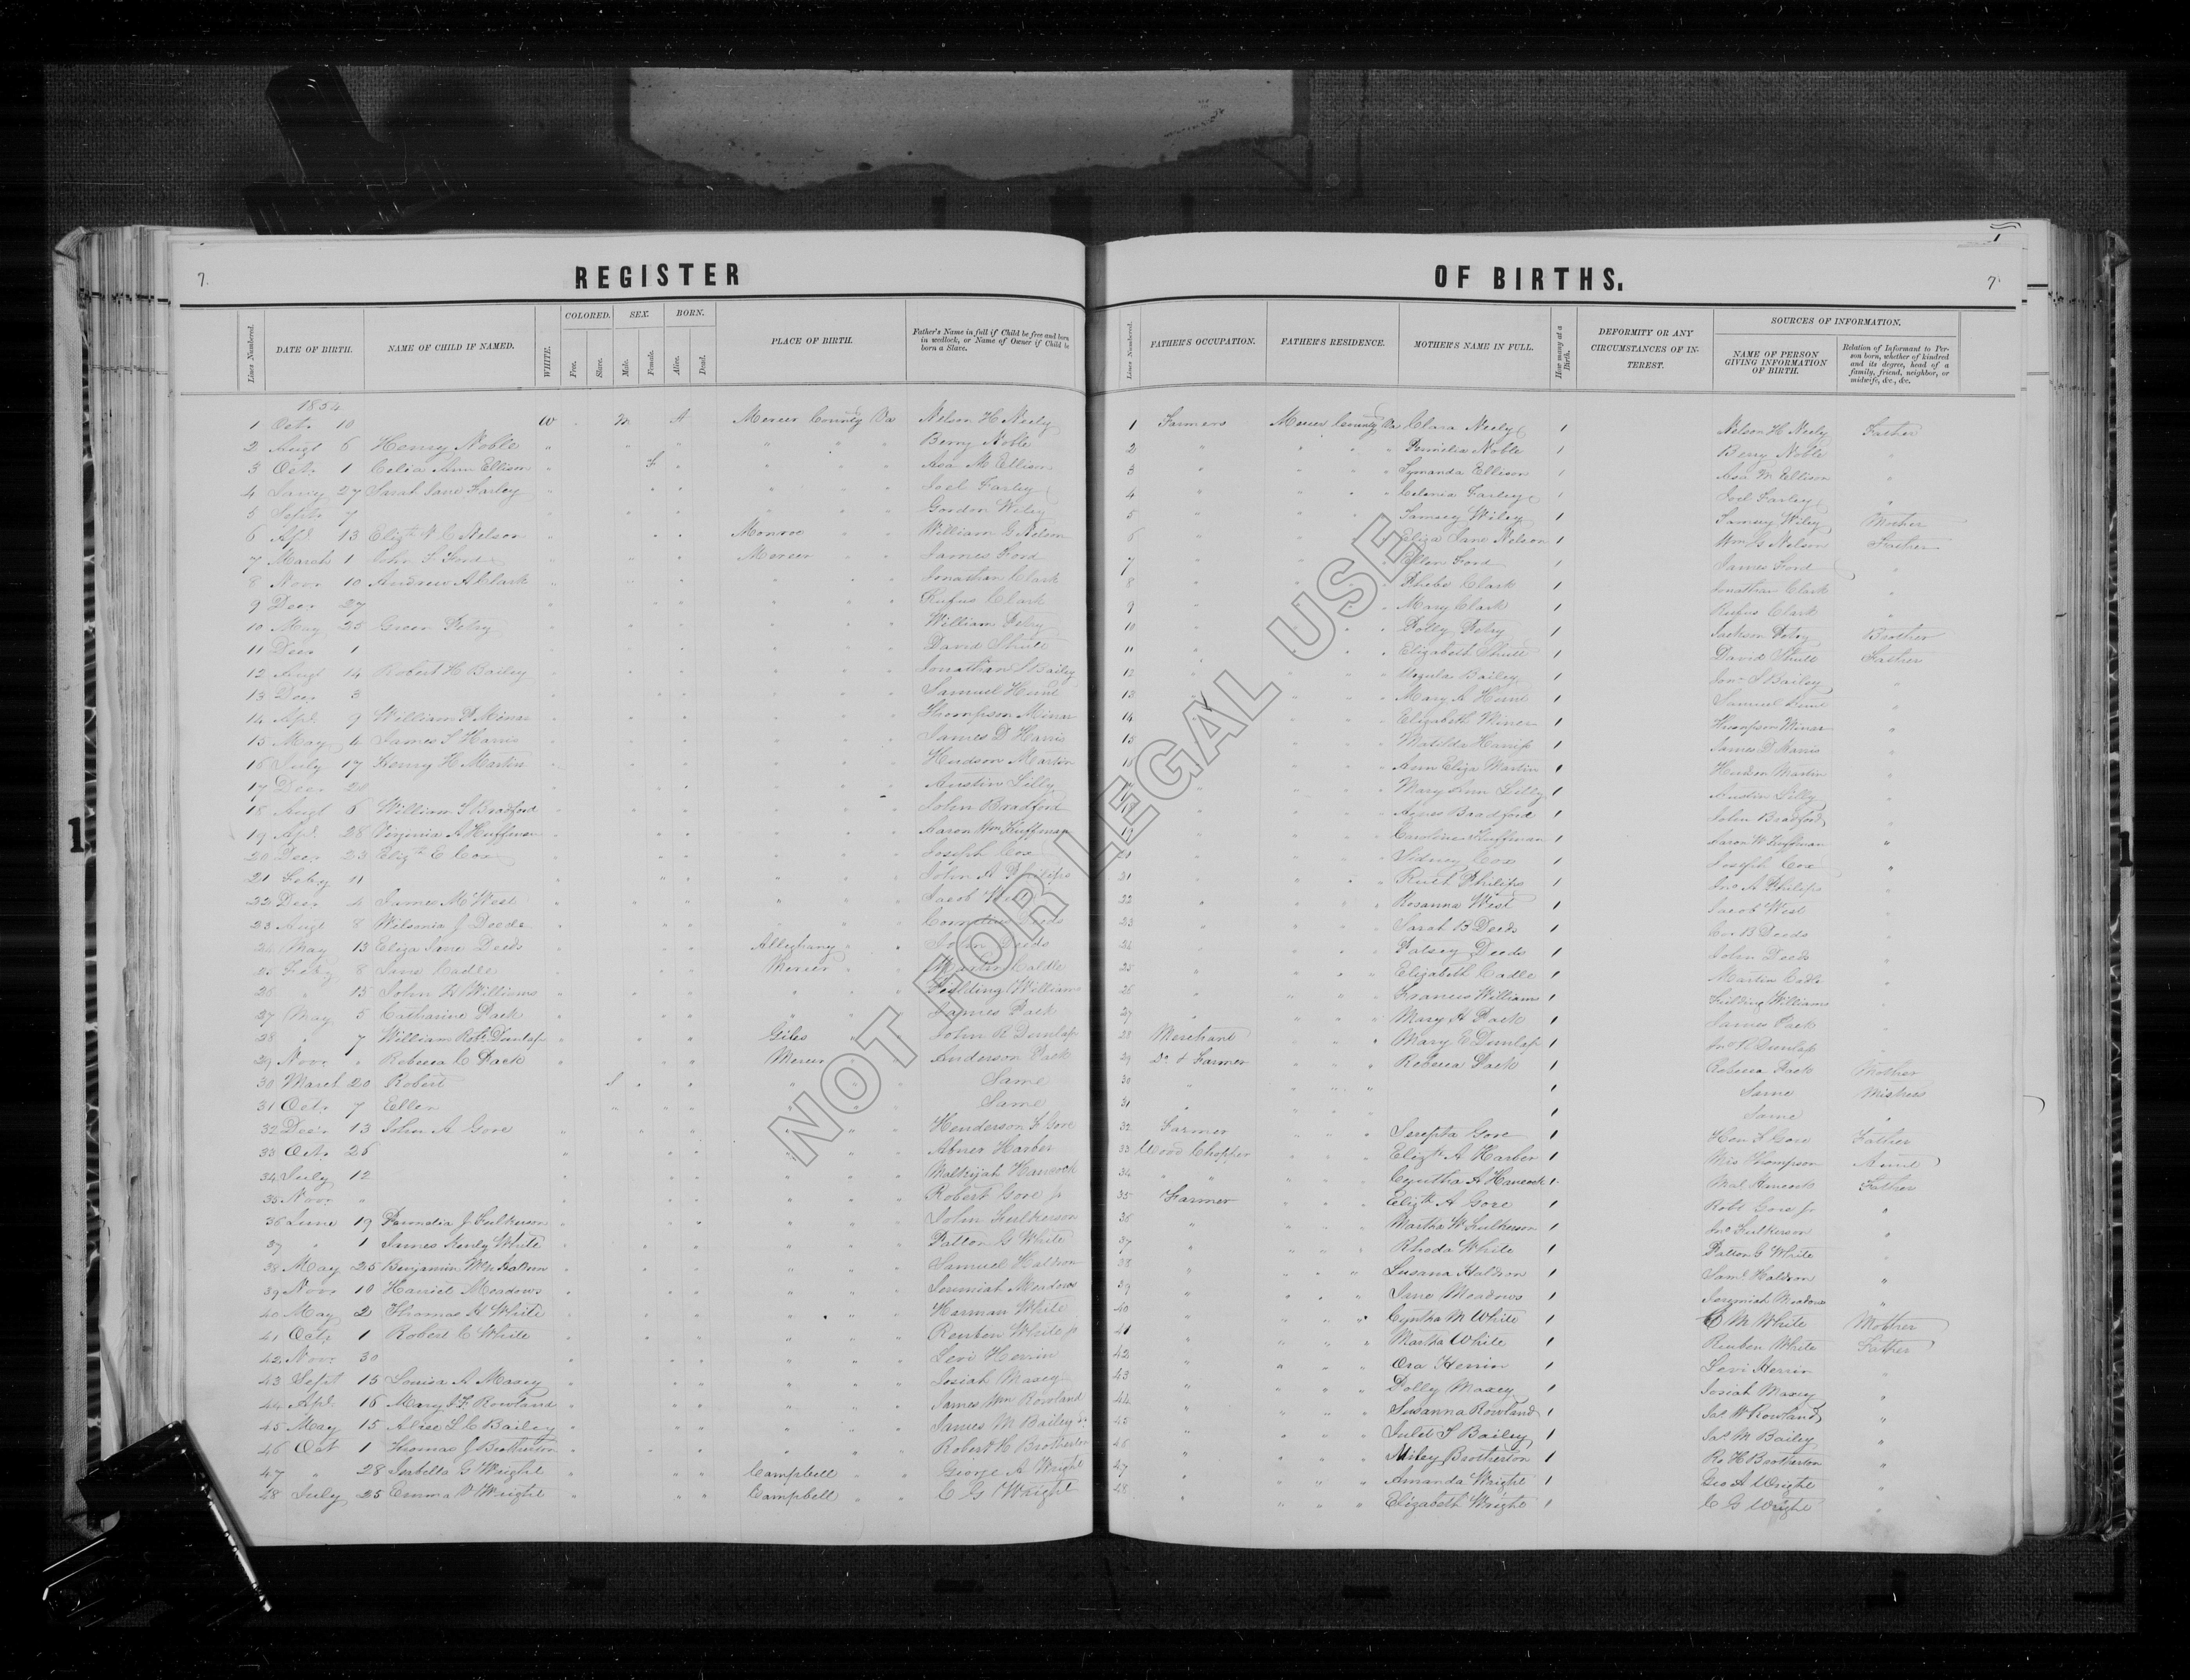 7.
REGISTER OF BIRTHS.
7.
Lines Numbered. DATE OF BIRTH. NAME OF CHILD IF NAMED. WHITE. COLORED. Free. Slave. SEX. Male. Female. BORN. Alive. Dead. PLACE OF BIRTH. Father's Name in full if Child be free and born in wedlock, or Name of Owner if Child be born a Slave.
Lines Numbered. FATHER'S OCCUPATION. FATHER'S RESIDENCE. MOTHER'S NAME IN FULL. How many at a Birth. DEFORMITY OR ANY CIRCUMSTANCES OF INTEREST. SOURCES OF INFORMATION. NAME OF PERSON GIVING INFORMATION OF BIRTH. Relation of Informant to Person born, whether of kindred and its degree, head of a family, friend, neighbor, or midwife, &c., &c.
1854
1 Oct. 10 W M A Mercer County Va Nelson H Neely 1 Farmers Mercer County Va Clara Neely 1 Nelson H Neely Father
2 Augt 6 Henry Noble " " " " " " Berry Noble 2 " " " " Permelia Noble 1 Berry Noble "
3 Oct. 1 Celia Ann Ellison " F " " " " Asa M Ellison 3 " " " " Symanda Ellison 1 Asa M Ellison "
4 Jany 27 Sarah Jane Farley " " " " " " Joel Farley 4 " " " " Farley 1 Joel Farley "
5 Septr 7 " " " " " " Gordon Wiley 5 " " " " Wiley 1 Wiley Mother
6 Apl 13 Elizth N C Nelson " " " Monroe " " William G Nelson 6 " " " " Eliza Jane Nelson 1 Wm G Nelson Father
7 March 1 John S Ford " " " Mercer " " James Ford 7 " " " " Ellen Ford 1 James Ford "
8 Novr 10 Andrew A Clark " " " " " " Jonathan Clark 8 " " " " Phebe Clark 1 Jonathan Clark "
9 Decr 27 " " " " " " Rufus Clark 9 " " " " Mary Clark 1 Rufus Clark "
10 May 25 Green Petry " " " " " " William Petry 10 " " " " Polly Petry 1 Jackson Petry Brother
11 Decr 1 " " " " " " David Shute 11 " " " " Elizabeth Shute 1 David Shute Father
12 Augt 14 Robert H Bailey " " " " " " Jonathan S Bailey 12 " " " " Bailey 1 Jon. S Bailey "
13 Decr 3 " " " " " " Samuel Hunt 13 " " " " Mary A Hunt 1 Samuel Hunt "
14 Apl 9 William P Minar " " " " " " Thompson Minar 14 " " " " Elizabeth Minor 1 Thompson Minar "
15 May 4 James S Harris " " " " " " James D Harris 15 " " " " Matilda Harris 1 James D Harris "
16 July 17 Henry H Martin " " " " " " Hudson Martin 16 " " " " Ann Eliza Martin 1 Hudson Martin "
17 Decr 20 " " " " " " Austin Lilly 17 " " " " Mary Ann Lilly 1 Austin Lilly "
18 Augt 6 William S Bradford " " " " " " John Bradford 18 " " " " Agnes Bradford 1 John Bradford "
19 Apl. 28 Virginia A Huffman " " " " " " Aaron Wm Huffman 19 " " " " Caroline Huffman 1 Aaron W Huffman "
20 Decr 23 Elizth E Cox " " " " " " Joseph Cox 20 " " " " Sidney Cox 1 Joseph Cox "
21 Feby 11 " " " " " " John A Philips 21 " " " " Ruth Philips 1 Jno A Philips "
22 Decr 4 James M West " " " " " " Jacob West 22 " " " " Rosanna West 1 Jacob West "
23 Augt 8 Wilsonia J Deeds " " " " " " Deeds 23 " " " " Sarah B Deeds 1 B Deeds "
24 May 13 Eliza Jane Deeds " " " Alleghany " " John Deeds 24 " " " " Patsey Deeds 1 John Deeds "
25 Feby 8 Jane Cadle " " " Mercer " " Martin Caldle 25 " " " " Elizabeth Cadle 1 Martin Cadle "
26 " 15 John H Williams " " " " " " Feilding Williams 26 " " " " Frances Williams 1 Fielding Williams "
27 May 5 Catharine Pack " " " " " " James Pack 27 " " " " Mary A Pack 1 James Pack "
28 " 7 William Robt Dunlap " " " Giles " " John R Dunlap 28 Merchant " " " Mary E Dunlap 1 Jno R Dunlap "
29 Novr " Rebecca C Pack " " " Mercer " " Anderson Pack 29 Do & Farmer " " " Rebecca Pack 1 Rebecca Pack Mother
30 March 20 Robert S " " " " " Same 30 " " " " 1 Same Mistress
31 Oct. 7 Ellen " " " " " " Same 31 " " " " 1 Same "
32 Decr 13 John A Gore " " " " " " Henderson F Gore 32 Farmer " " " Serepta Gore 1 Hen F Gore Father
33 Oct. 26 " " " " " " Abner Harber 33 Wood Chopper " " " Elizth A Harber 1 Mrs Thompson Aunt
34 July 12 " " " " " " Malkijah Hancock 34 " " " " " Cyntha A Hancock 1 Mal Hancock Father
35 Novr " " " " " " " Robert Gore jr 35 Farmer " " " Elizth A Gore 1 Robt Gore jr "
36 June 19 Permelia J Fulkerson " " " " " " John Fulkerson 36 " " " " Martha W Fulkerson 1 Jno Fulkerson "
37 " 1 James Henly White " " " " " " Patton G White 37 " " " " Rhoda White 1 Patton G White "
38 May 25 Benjamin Haldron " " " " " " Samuel Haldron 38 " " " " Susana Haldron 1 Saml Haldron "
39 Novr 10 Harriet Meadows " " " " " " Jeremiah Meadows 39 " " " " Jane Meadows 1 Jeremiah Meadows "
40 May 2 Thomas H White " " " " " " Harman White 40 " " " " Cyntha M White 1 C M White Mother
41 Oct. 1 Robert C White " " " " " " Reuben White jr 41 " " " " Martha White 1 Reuben White Father
42 Novr 30 " " " " " " Levi Herrin 42 " " " " Ora Herrin 1 Levi Herrin "
43 Sept 15 Louisa A Maxey " " " " " " Josiah Maxey 43 " " " " Polly Maxey 1 Josiah Maxey "
44 Apl. 16 Mary J F Rowland " " " " " " James Wm Rowland 44 " " " " Susanna Rowland 1 Jas W Rowland "
45 May 15 Alice L C Bailey " " " " " " James M Bailey 45 " " " " Julet S Bailey 1 Jas M Bailey "
46 Oct 1 Thomas J Brotherton " " " " " " Robert H Brotherton 46 " " " " Miley Brotherton 1 Ro H Brotherton "
47 " 28 Isabella G Wright " " " Campbell " " George A Wright 47 " " " " Amanda Wright 1 Geo A Wright "
48 July 25 Emma V Wright " " " Campbell " " C G Wright 48 " " " " Elizabeth Wright 1 C G Wright "
NOT FOR LEGAL USE